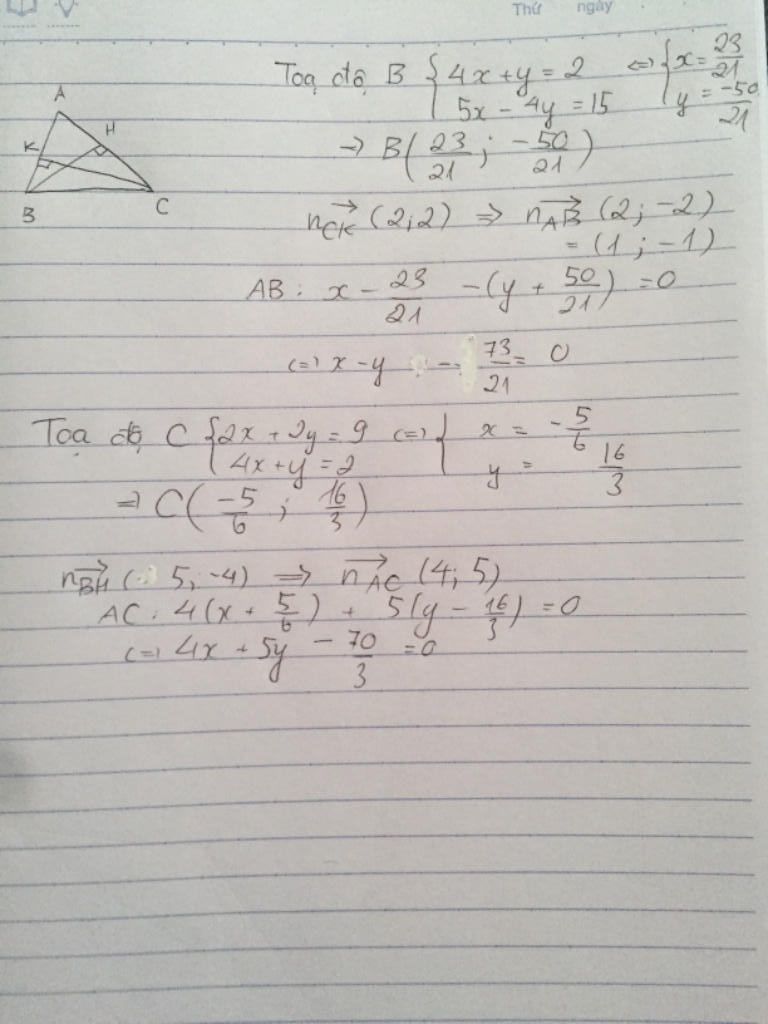 Thứ ngày
Toạ độ B { 4x + y = 2 <=> { x = 23/21
5x - 4y = 15 y = -50/21
→ B( 23/21 ; -50/21 )
A
H
K
B
C
n⃗CK (2; 2) => n⃗AB (2; -2)
= (1; -1)
AB: x - 23/21 - (y + 50/21) = 0
<=> x - y - 73/21 = 0
Toạ độ C { 2x + 2y = 9 <=> { x = -5/6
4x + y = 2 y = 16/3
=> C( -5/6 ; 16/3 )
n⃗BH (5; -4) => n⃗AC (4; 5)
AC: 4(x + 5/6) + 5(y - 16/3) = 0
<=> 4x + 5y - 70/3 = 0